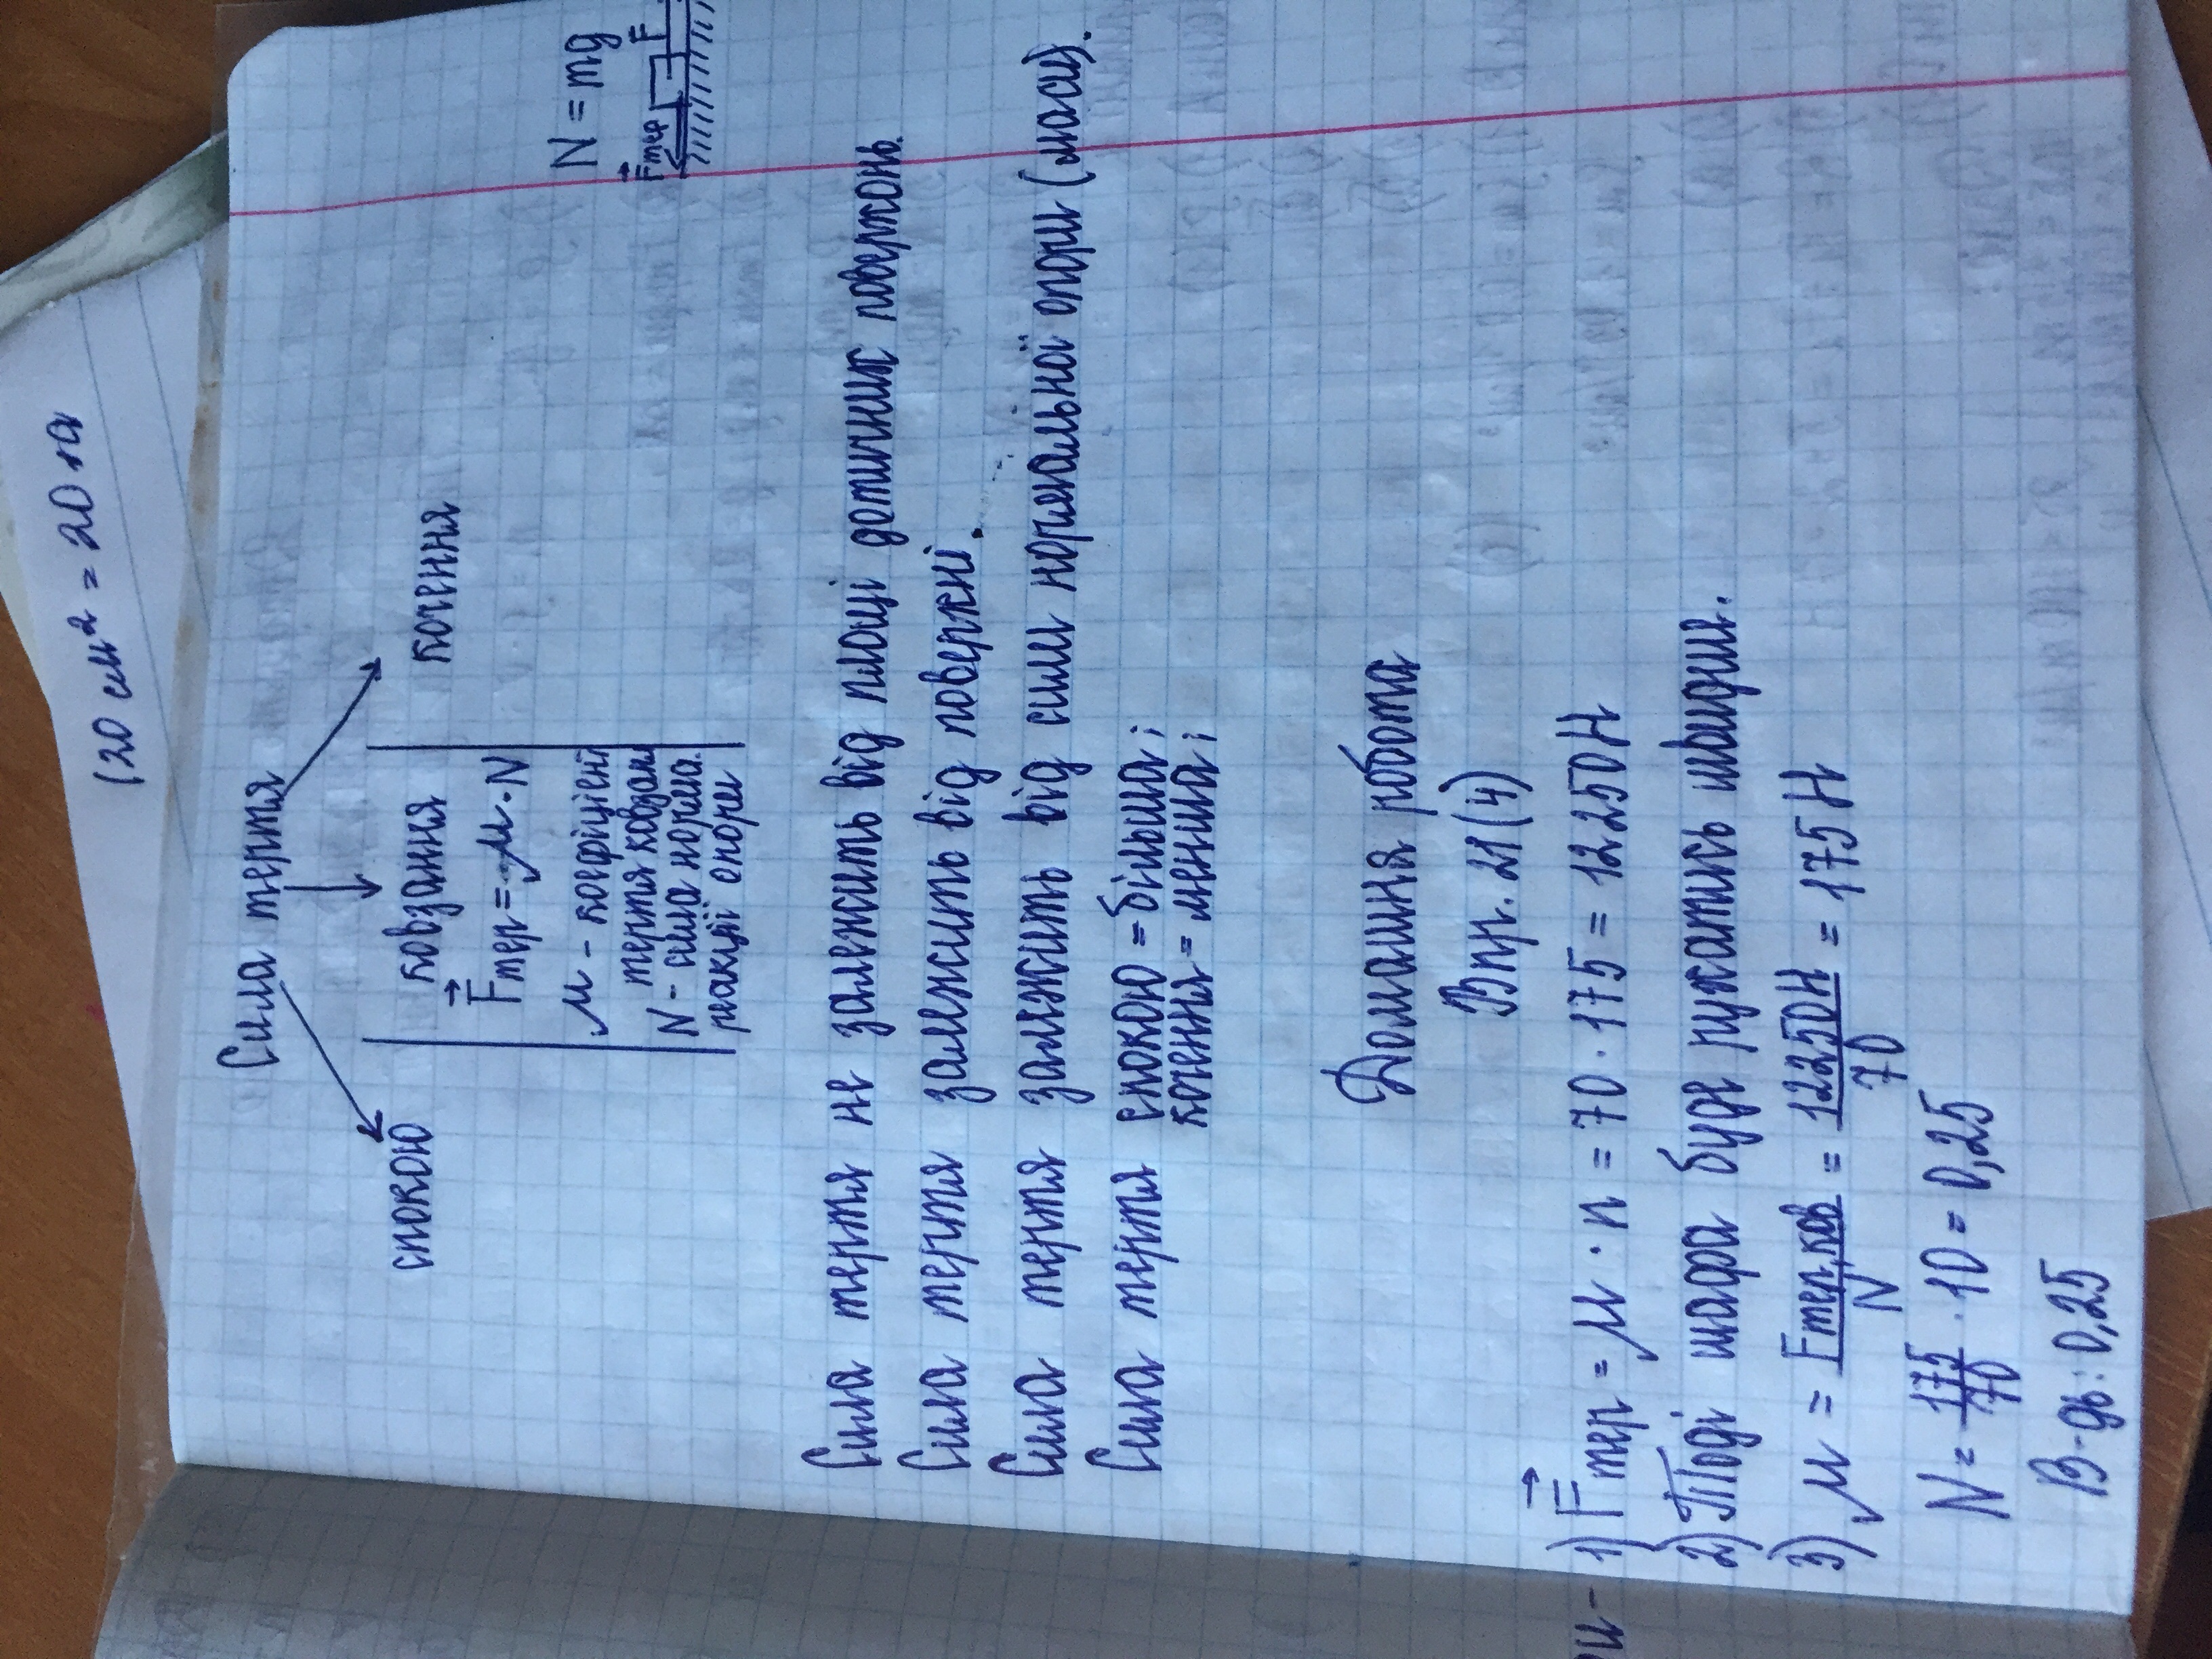 (20 см² = 20 га
Сила тертя
спокою
ковзання
кочення
F⃗тер = μ · N
μ - коефіцієнт
тертя ковзан
N - сила нормал.
реакції опори
N = mg
F⃗тер F⃗
Сила тертя не залежить від площі дотичних поверхонь.
Сила тертя залежить від поверхні.
Сила тертя залежить від сили нормальної опори (маси).
Сила тертя спокою = більша;
кочення = менша;
Домашня робота
Впр. 21(4)
1) F⃗тер = μ · n = 70 · 175 = 12250Н
2) Тоді шафа буде рухатись швидше.
3) μ = Fтер.ков / N = 12250Н / 70 = 175Н
N = 175 / 70 · 10 = 0,25
В-дь: 0,25